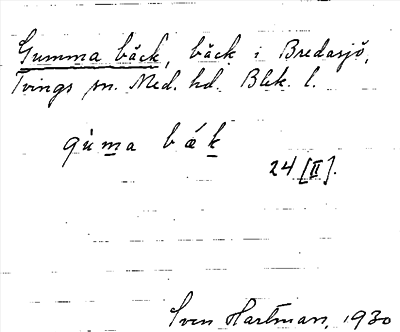 Gumma bäck, bäck i Bredasjö,
Tvings sn. Med. hd. Blek. l.
gùma bǽk
24 [II].
Sven Hartman, 1930